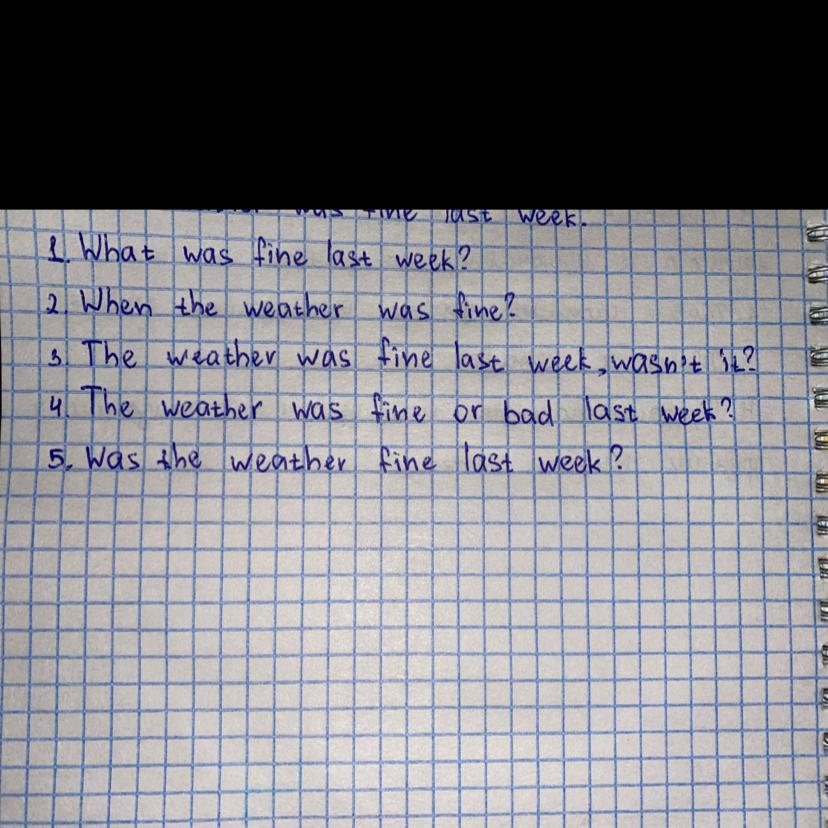 was fine last week.
1. What was fine last week?
2. When the weather was fine?
3. The weather was fine last week, wasn't it?
4. The weather was fine or bad last week?
5. Was the weather fine last week?